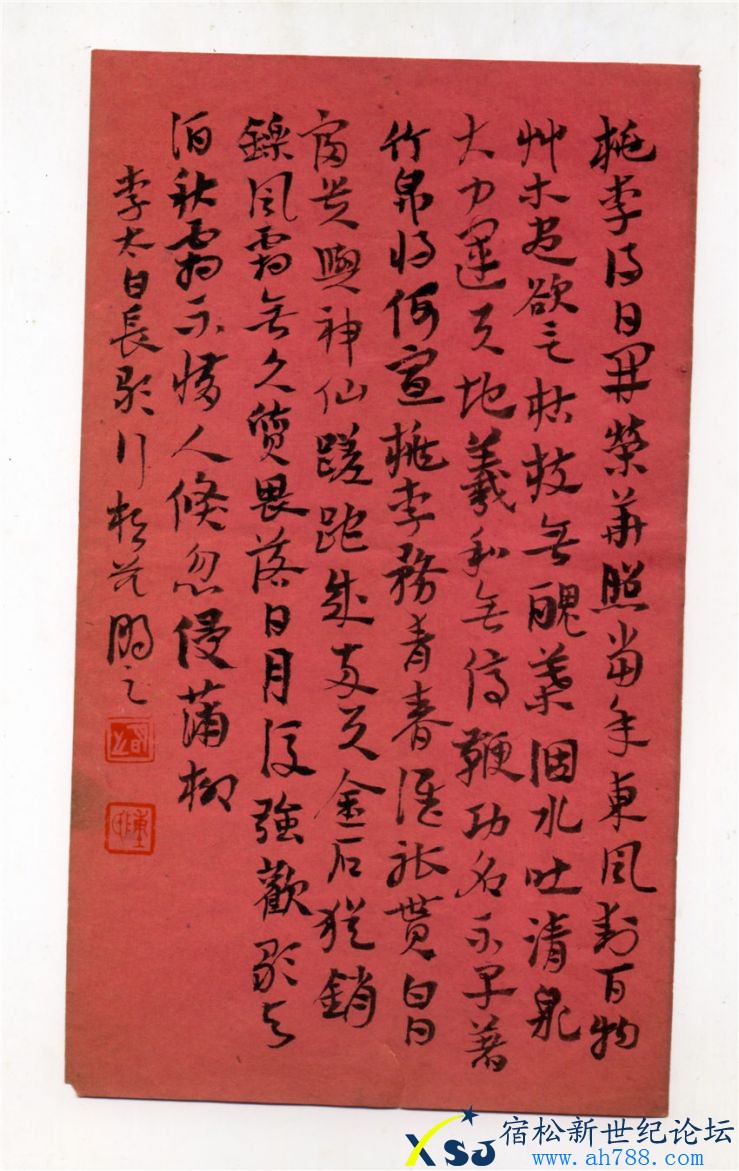 桃李得日開榮華照當年東風動百物
艸木盡欲言枯枝無醜葉涸水吐清泉
大力運天地羲和無停鞭功名不早著
竹帛將何宣桃李務青春誰能貰白日
富貴與神仙蹉跎成兩失金石猶銷
鑠風霜無久質畏落日月後強歡歌與
酒秋霜不惜人倏忽侵蒲柳
李太白長歌行
XSJ 宿松新世纪论坛
www.ah788.com